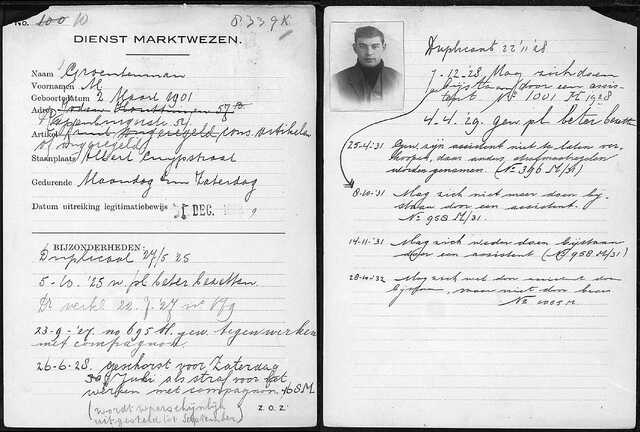 No. 100
8339K
DIENST MARKTWEZEN.
Naam Groenteman
Voornamen M
Geboortedatum 2 Maart 1901
Adres Joden Houttuinen 57
Artikel cons. artikelen
of ongeregeld
Staanplaats Albert Cuypstraat
Gedurende Maandag t/m Zaterdag
Datum uitreiking legitimatiebewijs DEC.
BIJZONDERHEDEN:
Duplicaat 27/5 25
5-10. '25 w/pl. beter bezetten.
22.7.'27 no
23-9-'27. no 695 M. gew. tegen werken
met compagnon.
26-6-28. geschorst voor Zaterdag
30 Juli als straf voor het
werken met compagnon. 168M
(wordt waarschijnlijk
uitgesteld tot September)
Z.O.Z.
Duplicaat 22/11 '28
7-12-28. Mag zich doen
bijstaan door een assis-
tent No 1001 M 1928
4.4.29. gew. pl. beter bezett
25-4-31 Gew. zijn assistent niet te laten ver-
koopen, daar anders strafmaatregelen
worden genomen. (No 396 M/31)
8-10-31 Mag zich niet meer doen bij-
staan door een assistent.
No 958 M/31.
14-11-'31 Mag zich weder doen bijstaan
door een assistent (No 958 M/31)
28-10-'32 Mag zich wel doen
maar niet door
No M